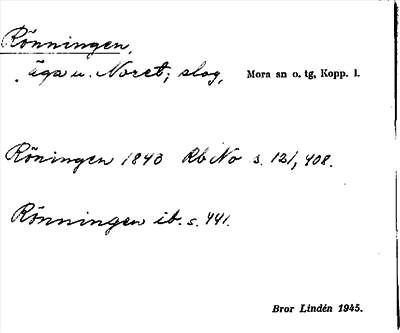 Rönningen,
äga u. Noret; slog,
Mora sn o. tg, Kopp. l.
Röningen 1843 Rb No s. 121, 408.
Rönningen ib. s. 441.
Bror Lindén 1945.